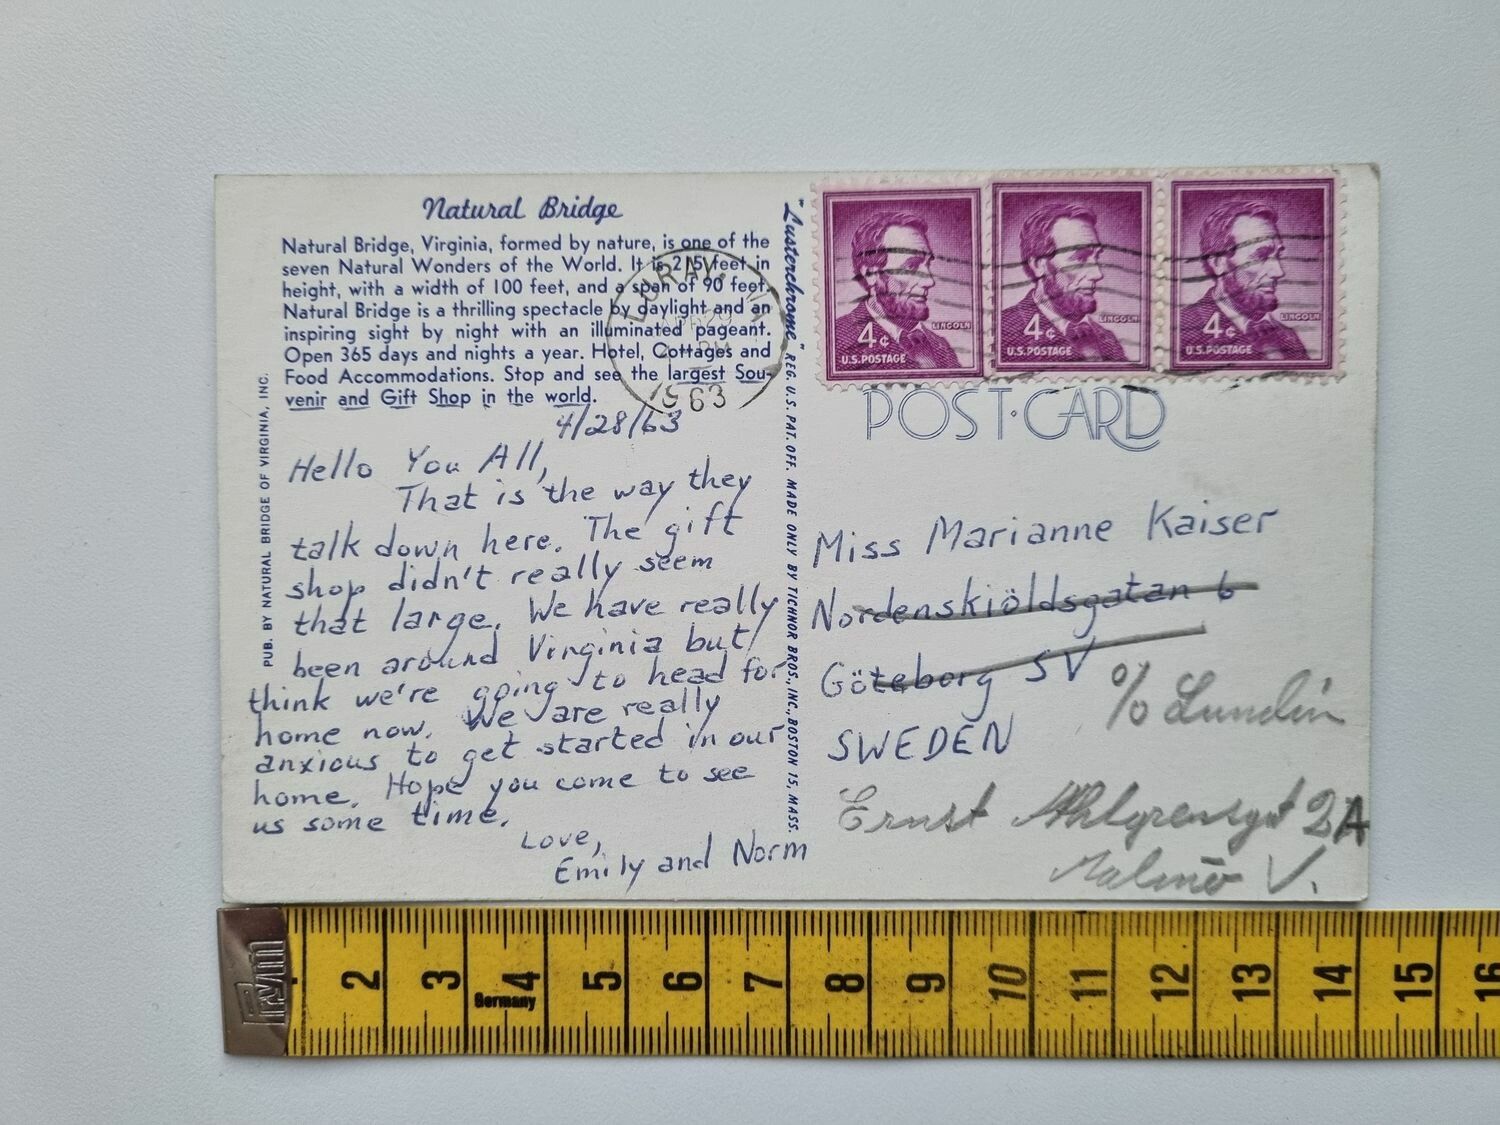 Natural Bridge
Natural Bridge, Virginia, formed by nature, is one of the
seven Natural Wonders of the World. It is 215 feet in
height, with a width of 100 feet, and a span of 90 feet.
Natural Bridge is a thrilling spectacle by daylight and an
inspiring sight by night with an illuminated pageant.
Open 365 days and nights a year. Hotel, Cottages and
Food Accommodations. Stop and see the largest Sou-
venir and Gift Shop in the world.
PUB. BY NATURAL BRIDGE OF VIRGINIA, INC.
4/28/63
Hello You All,
That is the way they
talk down here. The gift
shop didn't really seem
that large. We have really
been around Virginia but
think we're going to head for
home now. We are really
anxious to get started in our
home. Hope you come to see
us some time.
Love,
Emily and Norm
"Lusterchrome" REG. U.S. PAT. OFF. MADE ONLY BY TICHNOR BROS., INC., BOSTON 15, MASS.
LURAY, VA
APR 29
PM
1963
4¢ LINCOLN
U.S. POSTAGE
4¢ LINCOLN
U.S. POSTAGE
4¢ LINCOLN
U.S. POSTAGE
POST·CARD
Miss Marianne Kaiser
Nordenskiöldsgatan 6
Göteborg SV
SWEDEN
c/o Lundin
Ernst Ahlgrensgt 2A
Malmö V.
Prym
2 3 4 5 6 7 8 9 10 11 12 13 14 15 16
Germany